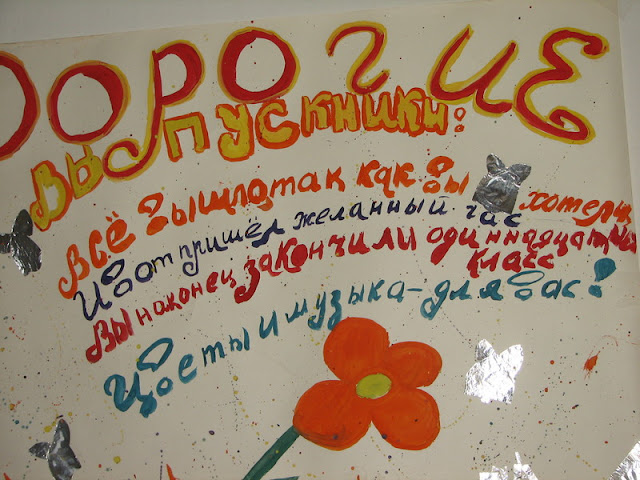 ДОРОГИЕ
ВЫПУСКНИКИ:
Всё вышло так как вы хотели,
И вот пришёл желанный час
Вы наконец закончили одиннадцатый
класс
Цветы и музыка - для вас!